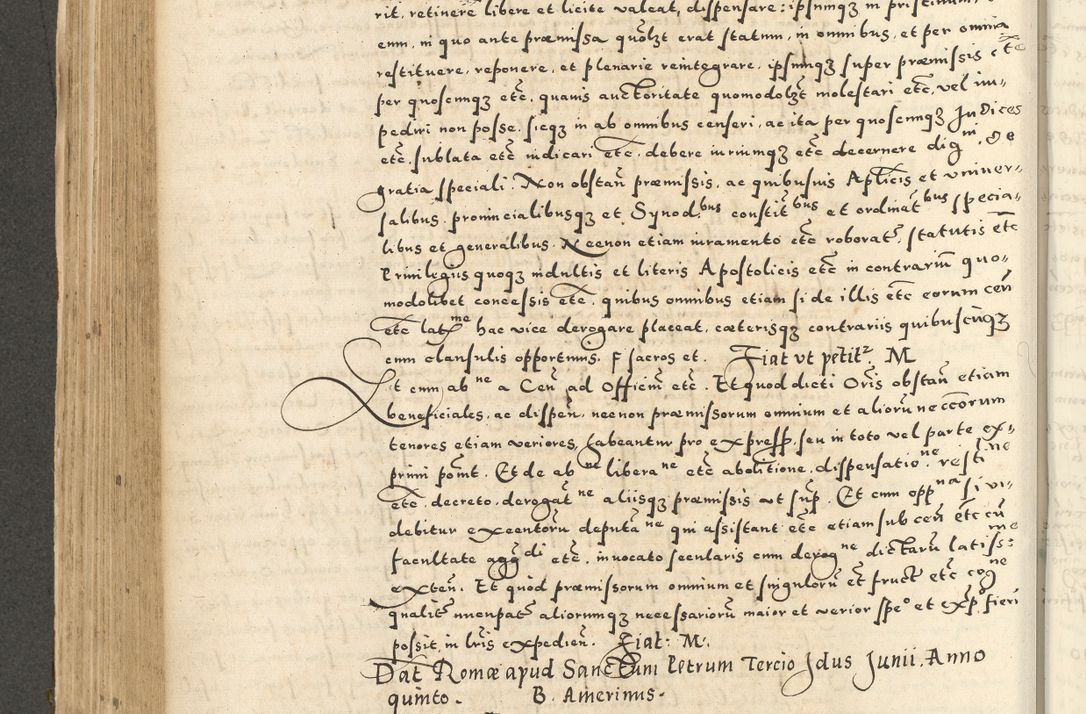 rit, retinere libere et licite valeat, dispensare: ipsumqȝ in pristinum,
eum, in quo ante præmissa quolȝt erat statum, in omnibus, et per omnia
restituere, reponere, et plenarie reintegrare, ipsumqȝ super præmissis etc
per quoscumqȝ etc. quauis auctoritate quomodolȝt molestari etc. vel im-
pediri non posse. sicqȝ in ab omnibus censeri, ac ita per quoscumqȝ Judices
etc. sublata etc iudicari etc. debere irritumqȝ etc decernere dig.m de
gratia speciali. Non obstan præmissis, ac quibusuis Aplicis et vniuer-
salibus. prouincialibusqȝ et Synod.bus constit.bus et ordinat.bus specia-
libus et generalibus. Necnon etiam iuramento etc roborat. statutis etc
Priuilegijs quoqȝ indultis et literis Apostolicis etc in contrarium quo-
modolibet concessis etc. quibus omnibus etiam si de illis etc eorum ten
etc lat.me hac vice derogare placeat, cæterisqȝ contrariis quibuscuqȝ
cum clausulis opportunis. F sacros et. Fiat vt petit.r M
Et cum ab.ne a Cen ad Officm etc. Et quod dicti Oris obstan etiam
beneficiales, ac dispen, necnon præmissorum omnium et alioru neccorum
tenores etiam veriores, habeantur pro express. seu in toto vel parte ex-
primi pomt. Et de ab.ne libera.ne etc abolitione, dispensatio.ne resti.ne
etc. decreto. derogat.ne aliisqȝ præmissis vt sup. Et cum opp.na si vi-
debitur executoru deputa.ne qui assistant etc etiam sub cen etc cu
facultate agg.di etc. inuocato secularis cum derog.ne dictaru latiss:me
exten. Et quod præmissorum omnium et singuloru et fruct etc cog.ne
qualit nuncpat aliorumqȝ necessarioru maior et verior spe.o et exp.o fieri
possit in lris expedien. Fiat: M.
Dat Romæ apud Sanctum Petrum Tercio Idus Junii. Anno
quinto. B. Amerinus.